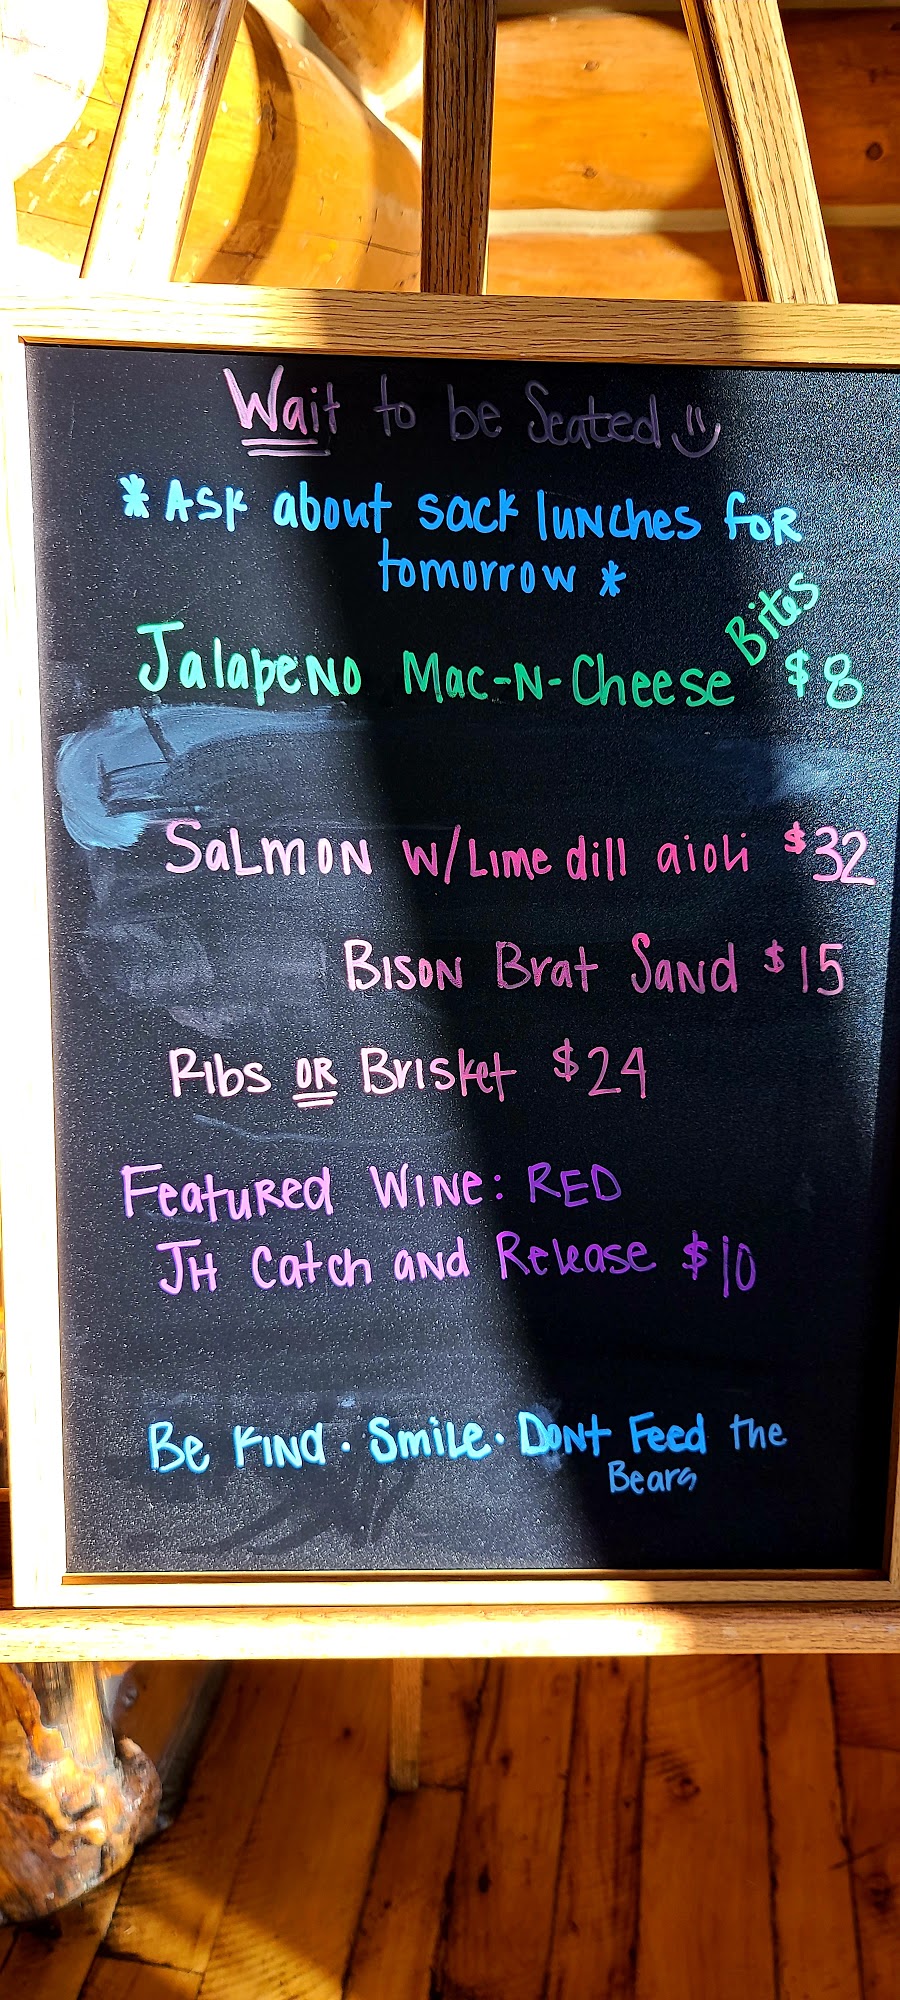 Wait to be Seated
*Ask about sack lunches for
tomorrow *
Jalapeno Mac-N-Cheese Bites $8
Salmon w/Lime dill aioli $32
Bison Brat Sand $15
Ribs OR Brisket $24
Featured Wine: RED
JH Catch and Release $10
Be Kind · Smile · Dont Feed the
Bears